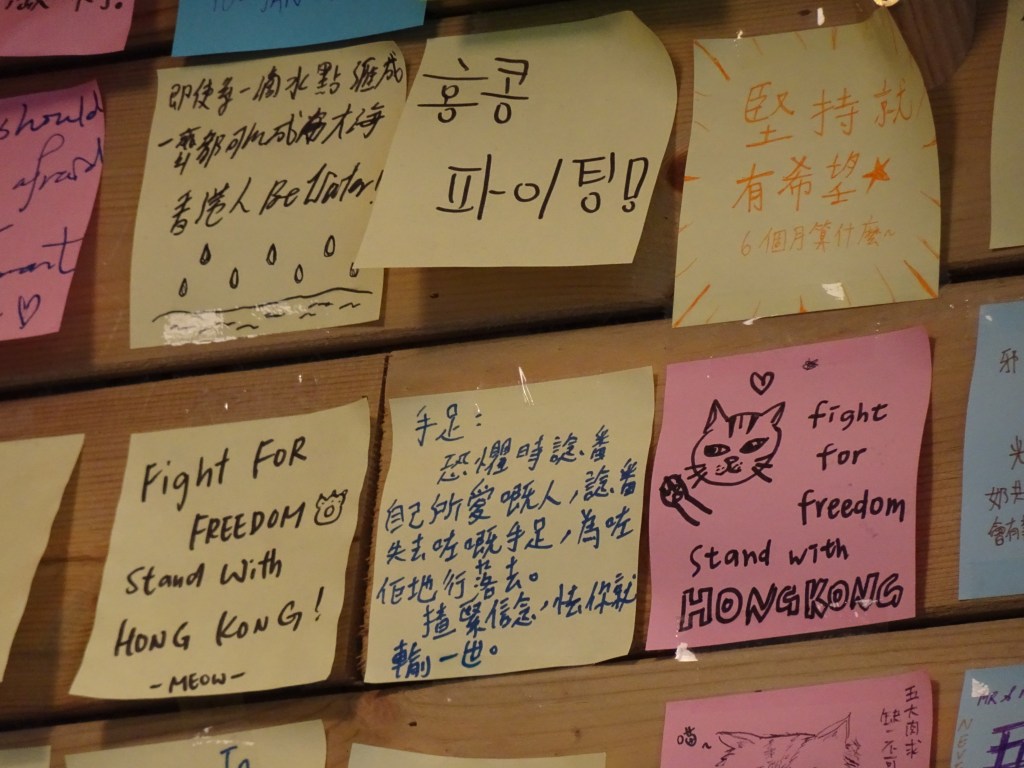 should
afraid
即使每一滴水點匯成
一齊都可以成為大海
香港人 Be Water!
홍콩
파이팅!
堅持就
有希望
6個月算什麼~
Fight FOR
FREEDOM
Stand With
HONG KONG!
-MEOW-
手足：
恐懼時諗番
自己所愛嘅人，諗番
失去咗嘅手足，為咗
佢地行落去。
揸緊信念，怯你就
輸一世。
fight
for
freedom
Stand with
HONG KONG
邪
光
奶共
會有
喵~
五大肉求
缺一不可